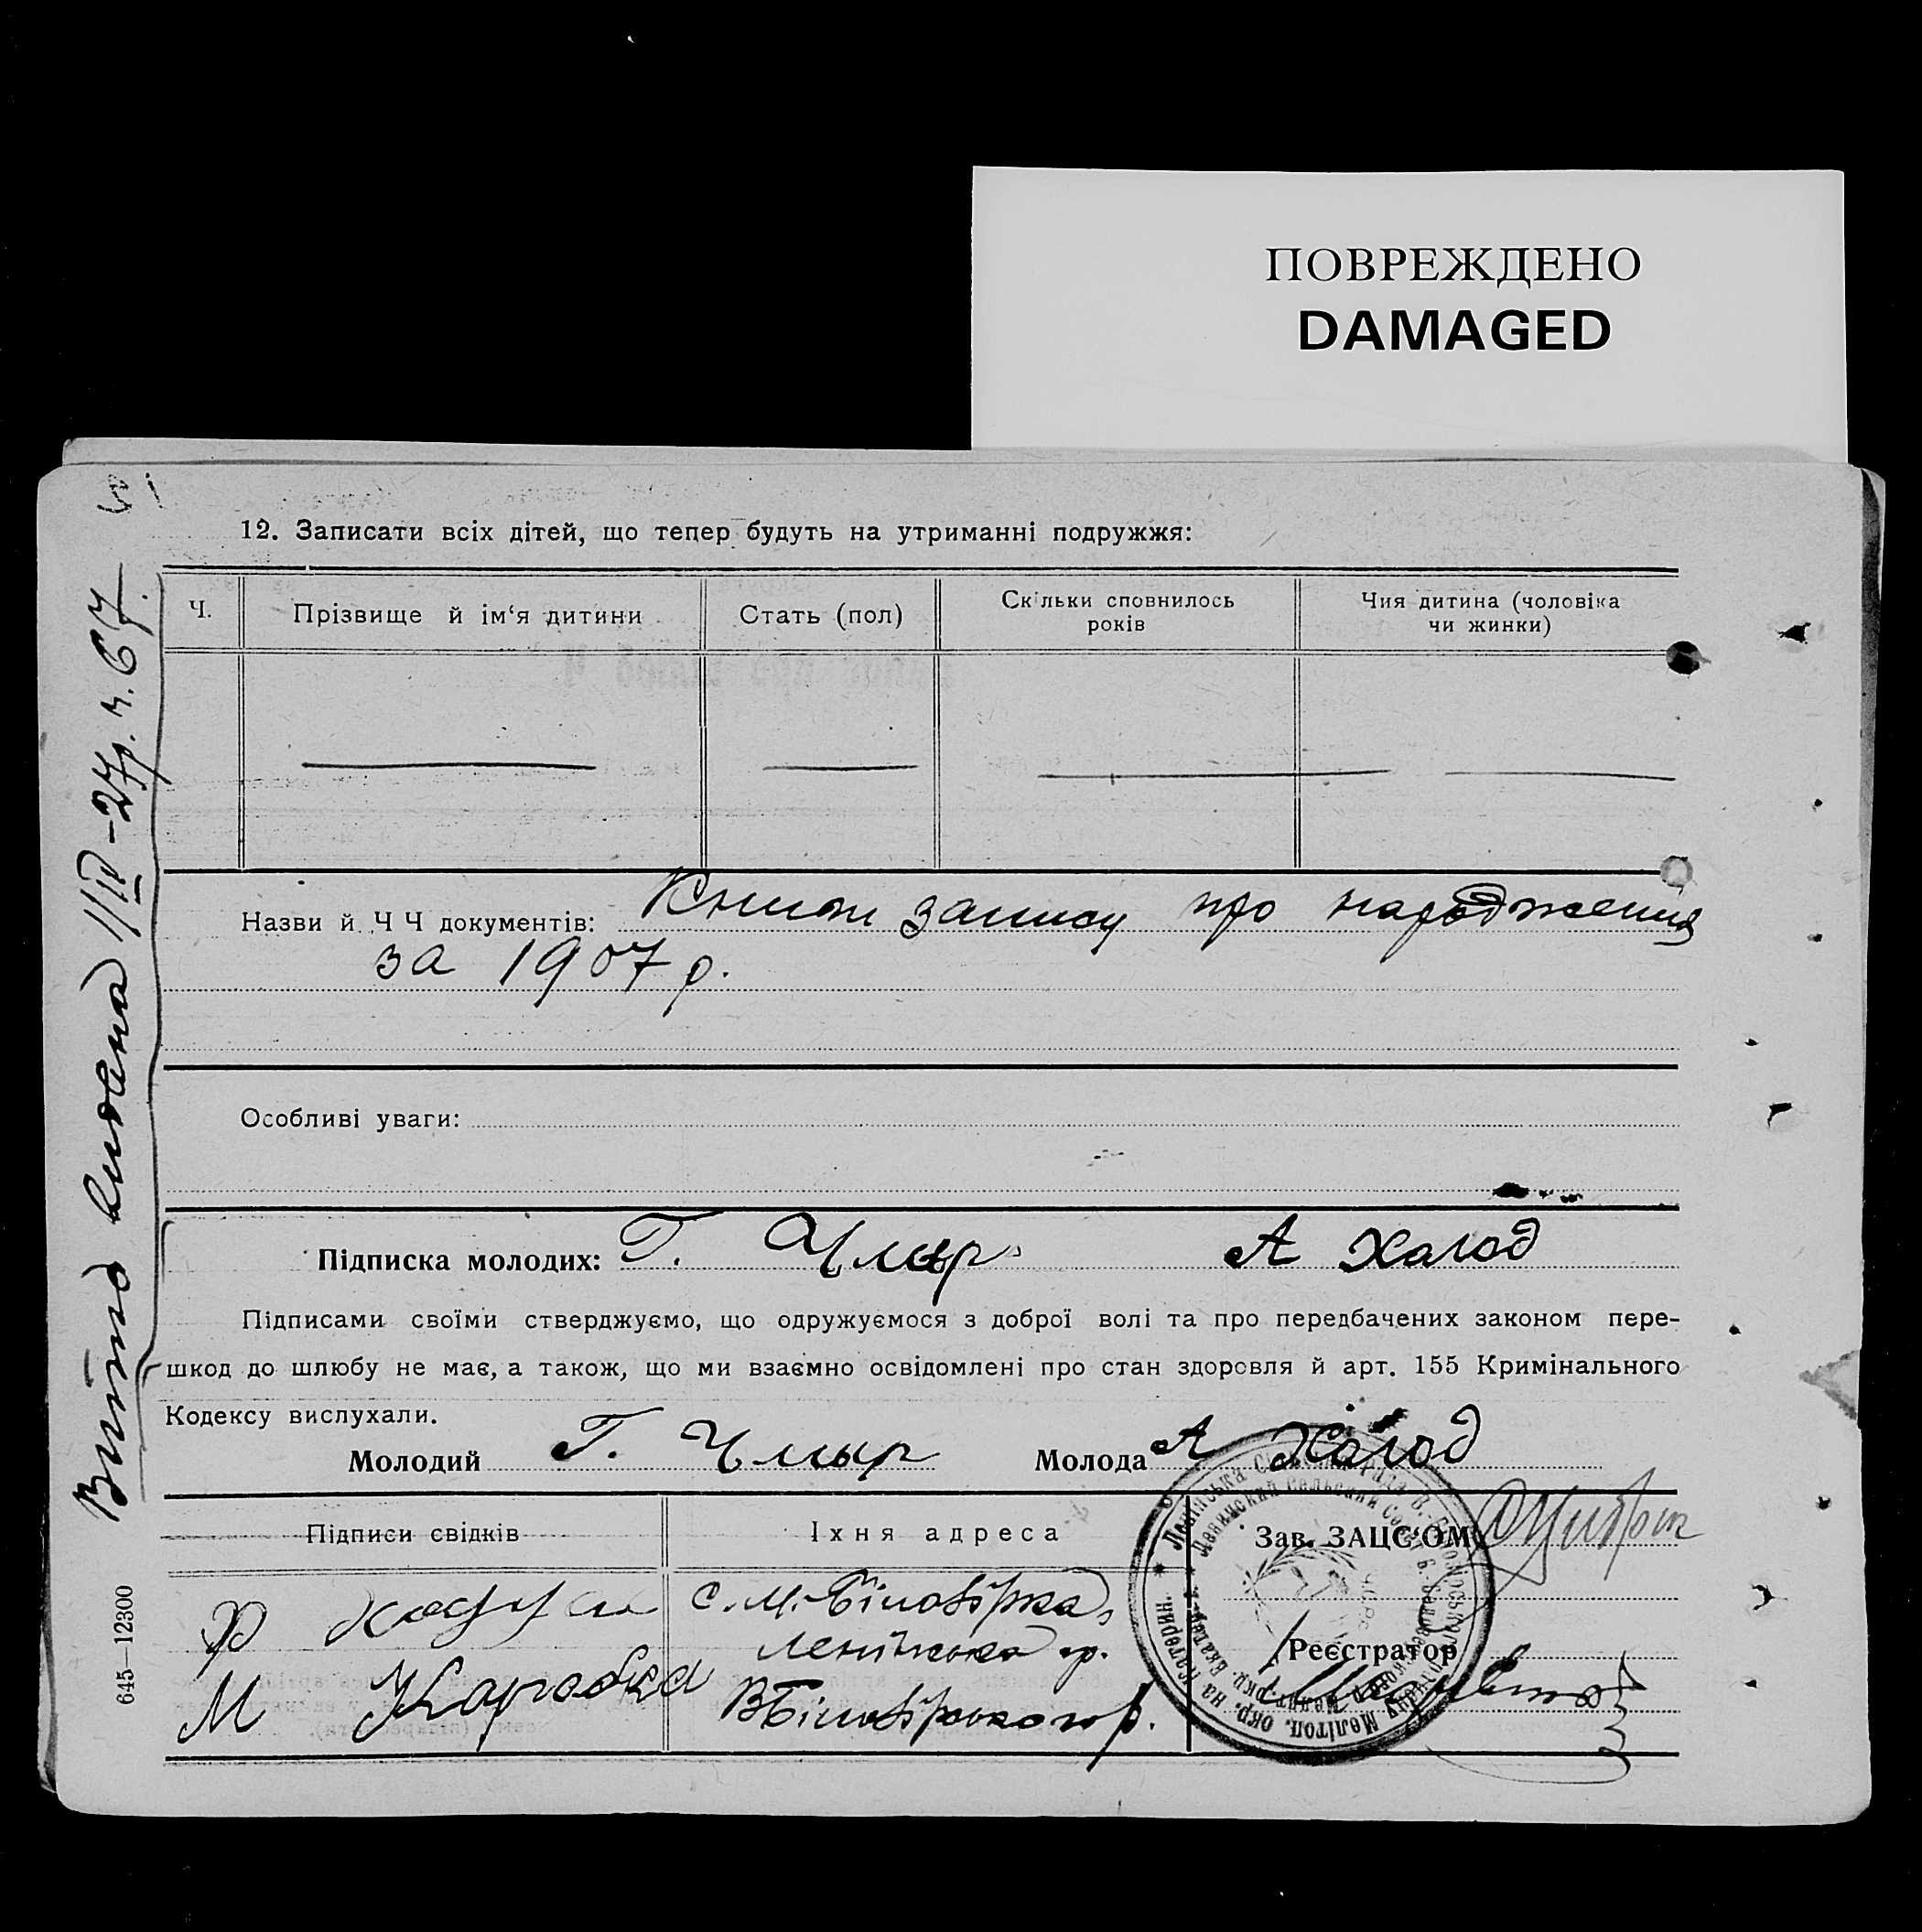 ПОВРЕЖДЕНО
DAMAGED
12. Записати всіх дітей, що тепер будуть на утриманні подружжя:
Ч.
Прізвище й ім‘я дитини
Стать (пол)
Скільки сповнилось
років
Чия дитина (чоловіка
чи жинки)
Назви й Ч Ч документів: Книги запису про народження
за 1907 р.
Особливі уваги:
Підписка молодих: Г. Чмыр А Халод
Підписами своїми стверджуємо, що одружуємося з доброї волі та про передбачених законом пере-
шкод до шлюбу не має, а також, що ми взаємно освідомлені про стан здоровля й арт. 155 Кримінального
Кодексу вислухали.
Молодий Г. Чмыр Молода А Халод
Підписи свідків
Їхня адреса
Зав. ЗАЦС‘ОМ
с. М.-Білозірка,
Ленінська
Реєстратор
М
В Білозірського р.
Витяг видана 1/IV-27р. ч. 67.
645—12300